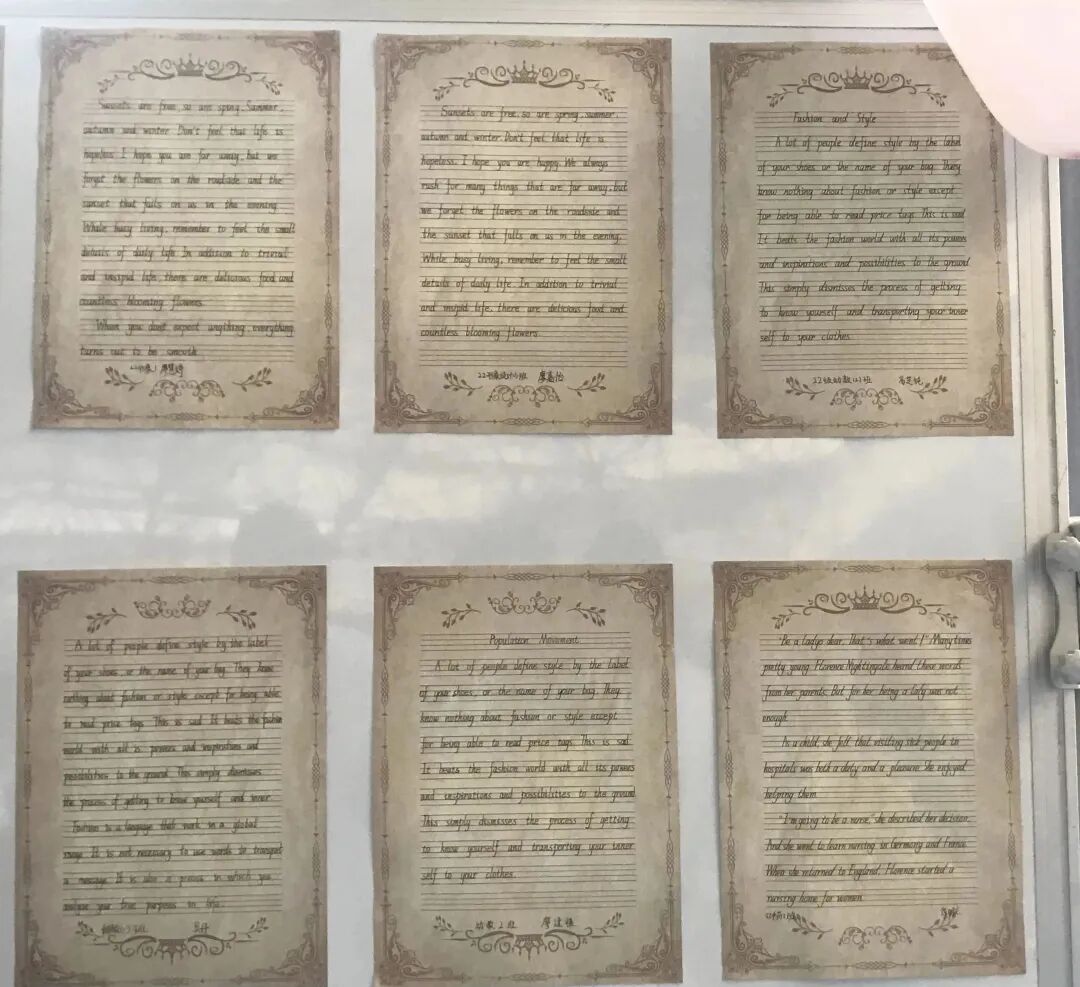 Sunsets are free, so are spring. Summer,
autumn and winter. Don't feel that life is
hopeless. I hope you are far away, but we
forget the flowers on the roadside and the
sunset that falls on us in the evening.
While busy living, remember to feel the small
details of daily life. In addition to trivial
and insipid life, there are delicious food and
countless blooming flowers.
When you don't expect anything everything
turns out to be smooth.
Sunsets are free, so are spring, summer,
autumn and winter. Don't feel that life is
hopeless. I hope you are happy. We always
rush for many things that are far away, but
we forget the flowers on the roadside and
the sunset that falls on us in the evening.
While busy living, remember to feel the small
details of daily life. In addition to trivial
and insipid life, there are delicious food and
countless blooming flowers.
廖嘉怡
Fashion and Style
A lot of people define style by the label
of your shoes or the name of your bag. They
know nothing about fashion or style except
for being able to read price tags. This is sad
It beats the fashion world with all its powers
and inspirations and possibilities to the ground
This simply dismisses the process of getting
to know yourself and transporting your inner
self to your clothes.
22级幼教(2)班
A lot of people define style by the label
of your shoes, or the name of your bag. They know
nothing about fashion or style except for being able
to read price tags. This is sad. It beats the fashion
world with all is powers and inspirations and
possibilities to the ground. This simply dismisses
the process of getting to know yourself and inner.
Fashion is a language that work in a global
It is not necessary to use words to transport
a message. It is also a process in which you
your true purposes in life.
Population Movement
A lot of people define style by the label
of your shoes, or the name of your bag. They
know nothing about fashion or style except
for being able to read price tags. This is sad.
It beats the fashion world with all its powers
and inspirations and possibilities to the ground
This simply dismisses the process of getting
to know yourself and transporting your inner
self to your clothes.
幼教2班 廖建雄
"Be a lady, dear. That's what went!" Many times
pretty young Florence Nightingale heard these words
from her parents. But for her being a lady was not
enough.
As a child, she felt that visiting sick people in
hospitals was both a duty and a pleasure. She enjoyed
helping them.
"I'm going to be a nurse," she described her decision.
And she went to learn nursing in Germany and France.
When she returned to England, Florence started a
nursing home for women.